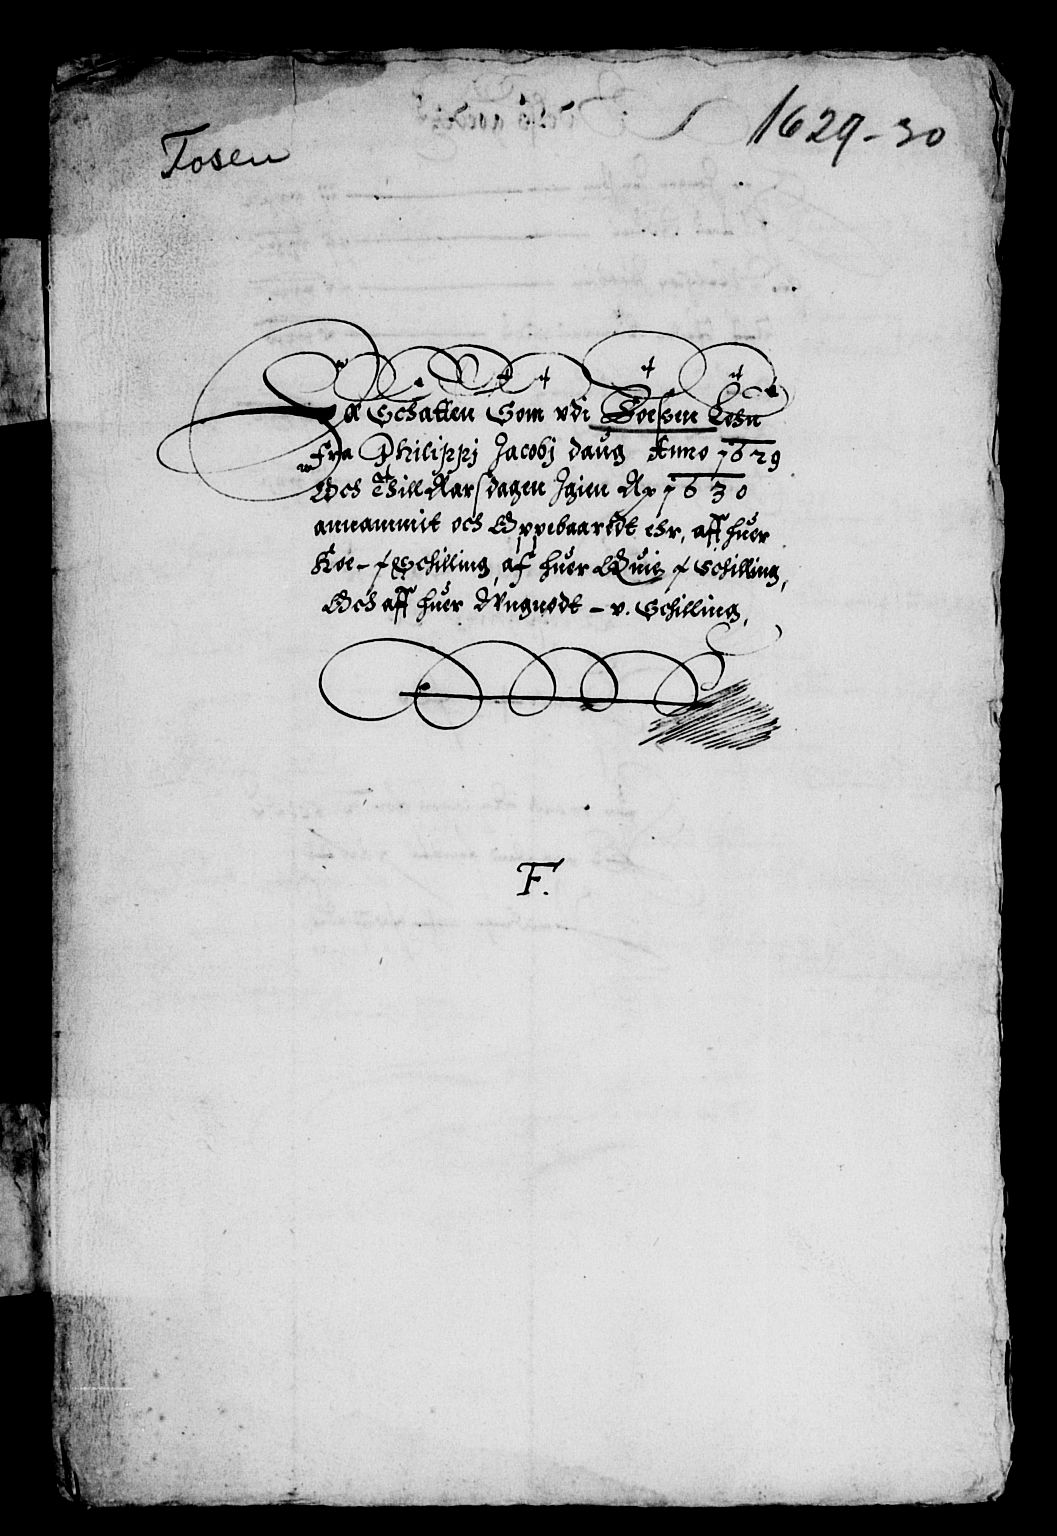 1629-30
Tosen
Schatten Som vdi Toesøm Lehn
Fra Philippj Jacobj daug Anno 1629
Och Till Aarsdagen Jgien A̅o̅ 1630
annammit och Oppebaaridt ehr, aff huer
Koe - j Schilling, aff huer Quie j Schilling,
Och aff huer Vngnødt - v. Schilling,
F.